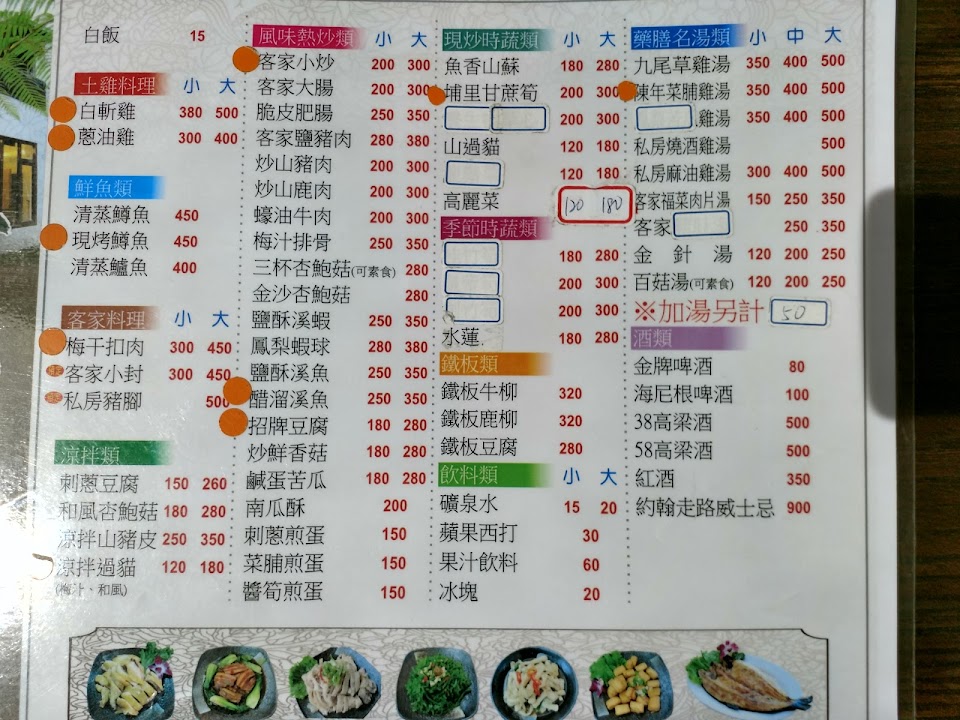 白飯 15
土雞料理 小 大
白斬雞 380 500
蔥油雞 300 400
鮮魚類
清蒸鱒魚 450
現烤鱒魚 450
清蒸鱸魚 400
客家料理 小 大
梅干扣肉 300 450
客家小封 300 450
私房豬腳 500
涼拌類
刺蔥豆腐 150 260
和風杏鮑菇 180 280
涼拌山豬皮 250 350
涼拌過貓 120 180
(梅汁、和風)
風味熱炒類 小 大
客家小炒 200 300
客家大腸 200 300
脆皮肥腸 250 350
客家鹽豬肉 280 380
炒山豬肉 200 300
炒山鹿肉 200 300
蠔油牛肉 200 300
梅汁排骨 250 350
三杯杏鮑菇(可素食) 280
金沙杏鮑菇 280
鹽酥溪蝦 250 350
鳳梨蝦球 280 380
鹽酥溪魚 250 350
醋溜溪魚 250 350
招牌豆腐 180 280
炒鮮香菇 180 280
鹹蛋苦瓜 180 280
南瓜酥 200
刺蔥煎蛋 150
菜脯煎蛋 150
醬筍煎蛋 150
現炒時蔬類 小 大
魚香山蘇 180 280
埔里甘蔗筍 200 300
200 300
山過貓 120 180
120 180
高麗菜 120 180
季節時蔬類
180 280
200 300
200 300
水蓮 180 280
鐵板類
鐵板牛柳 320
鐵板鹿柳 320
鐵板豆腐 280
飲料類 小 大
礦泉水 15 20
蘋果西打 30
果汁飲料 60
冰塊 20
藥膳名湯類 小 中 大
九尾草雞湯 350 400 500
陳年菜脯雞湯 350 400 500
雞湯 350 400 500
私房燒酒雞湯 500
私房麻油雞湯 300 400 500
客家福菜肉片湯 150 250 350
客家 250 350
金針湯 120 200 250
百菇湯(可素食) 120 200 250
※加湯另計 50
酒類
金牌啤酒 80
海尼根啤酒 100
38高梁酒 500
58高梁酒 500
紅酒 350
約翰走路威士忌 900